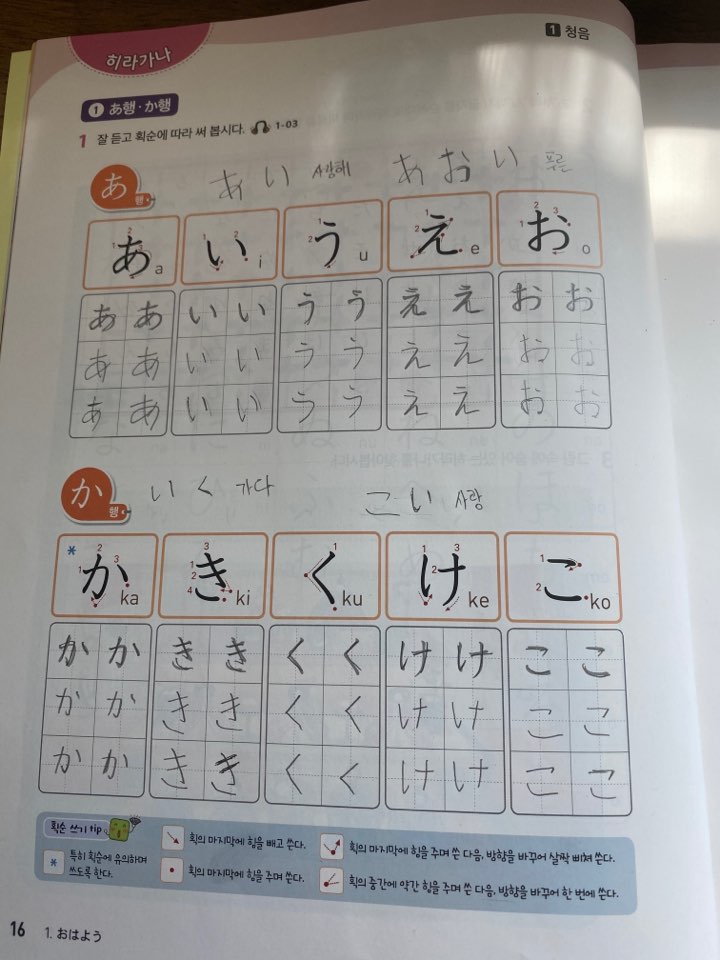 히라가나
1 청음
1 あ행·か행
1 잘 듣고 획순에 따라 써 봅시다. 1-03
あ행 あい 사랑해 あおい 푸른
あ a い i う u え e お o
ああ いい うう ええ おお
ああ いい うう ええ おお
ああ いい うう ええ おお
か행 いく 가다 こい 사랑
* か ka き ki く ku け ke こ ko
かか きき くく けけ ここ
かか きき くく けけ ここ
かか きき くく けけ ここ
획순 쓰기 tip
* 특히 획순에 유의하며 쓰도록 한다.
획의 마지막에 힘을 빼고 쓴다.
획의 마지막에 힘을 주며 쓴다.
획의 마지막에 힘을 주며 쓴 다음, 방향을 바꾸어 살짝 삐쳐 쓴다.
획의 중간에 약간 힘을 주며 쓴 다음, 방향을 바꾸어 한 번에 쓴다.
16 1. おはよう